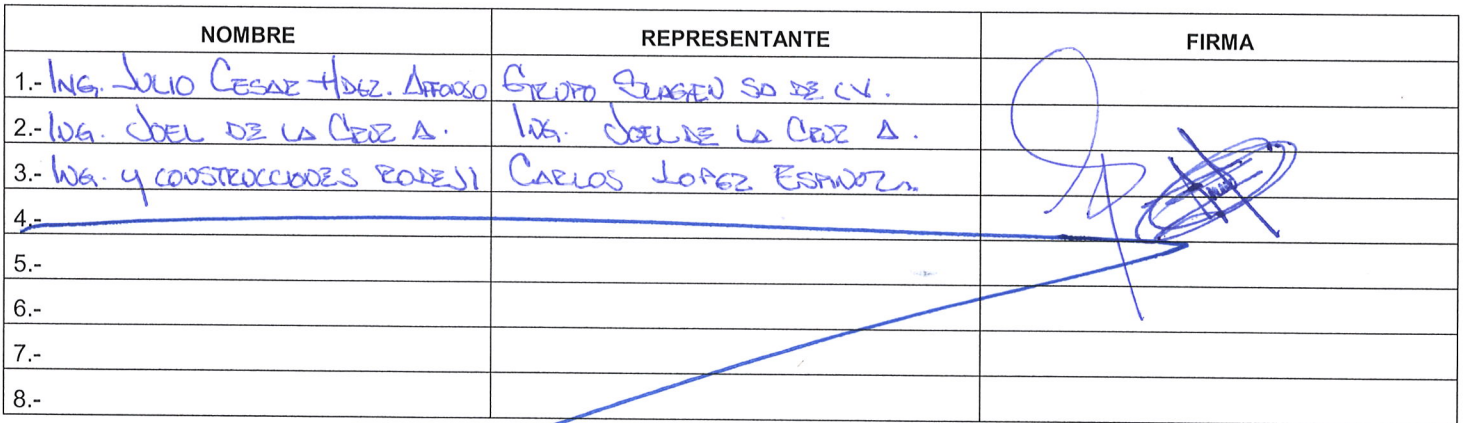 NOMBRE REPRESENTANTE FIRMA
1.- ING. JULIO CESAR HDEZ. AFFONSO GRUPO SA DE CV.
2.- ING. JOEL DE LA CRUZ A. ING. JOEL DE LA CRUZ A.
3.- ING. Y CONSTRUCCIONES RODEJI CARLOS LOPEZ ESPINOZA
4.-
5.-
6.-
7.-
8.-